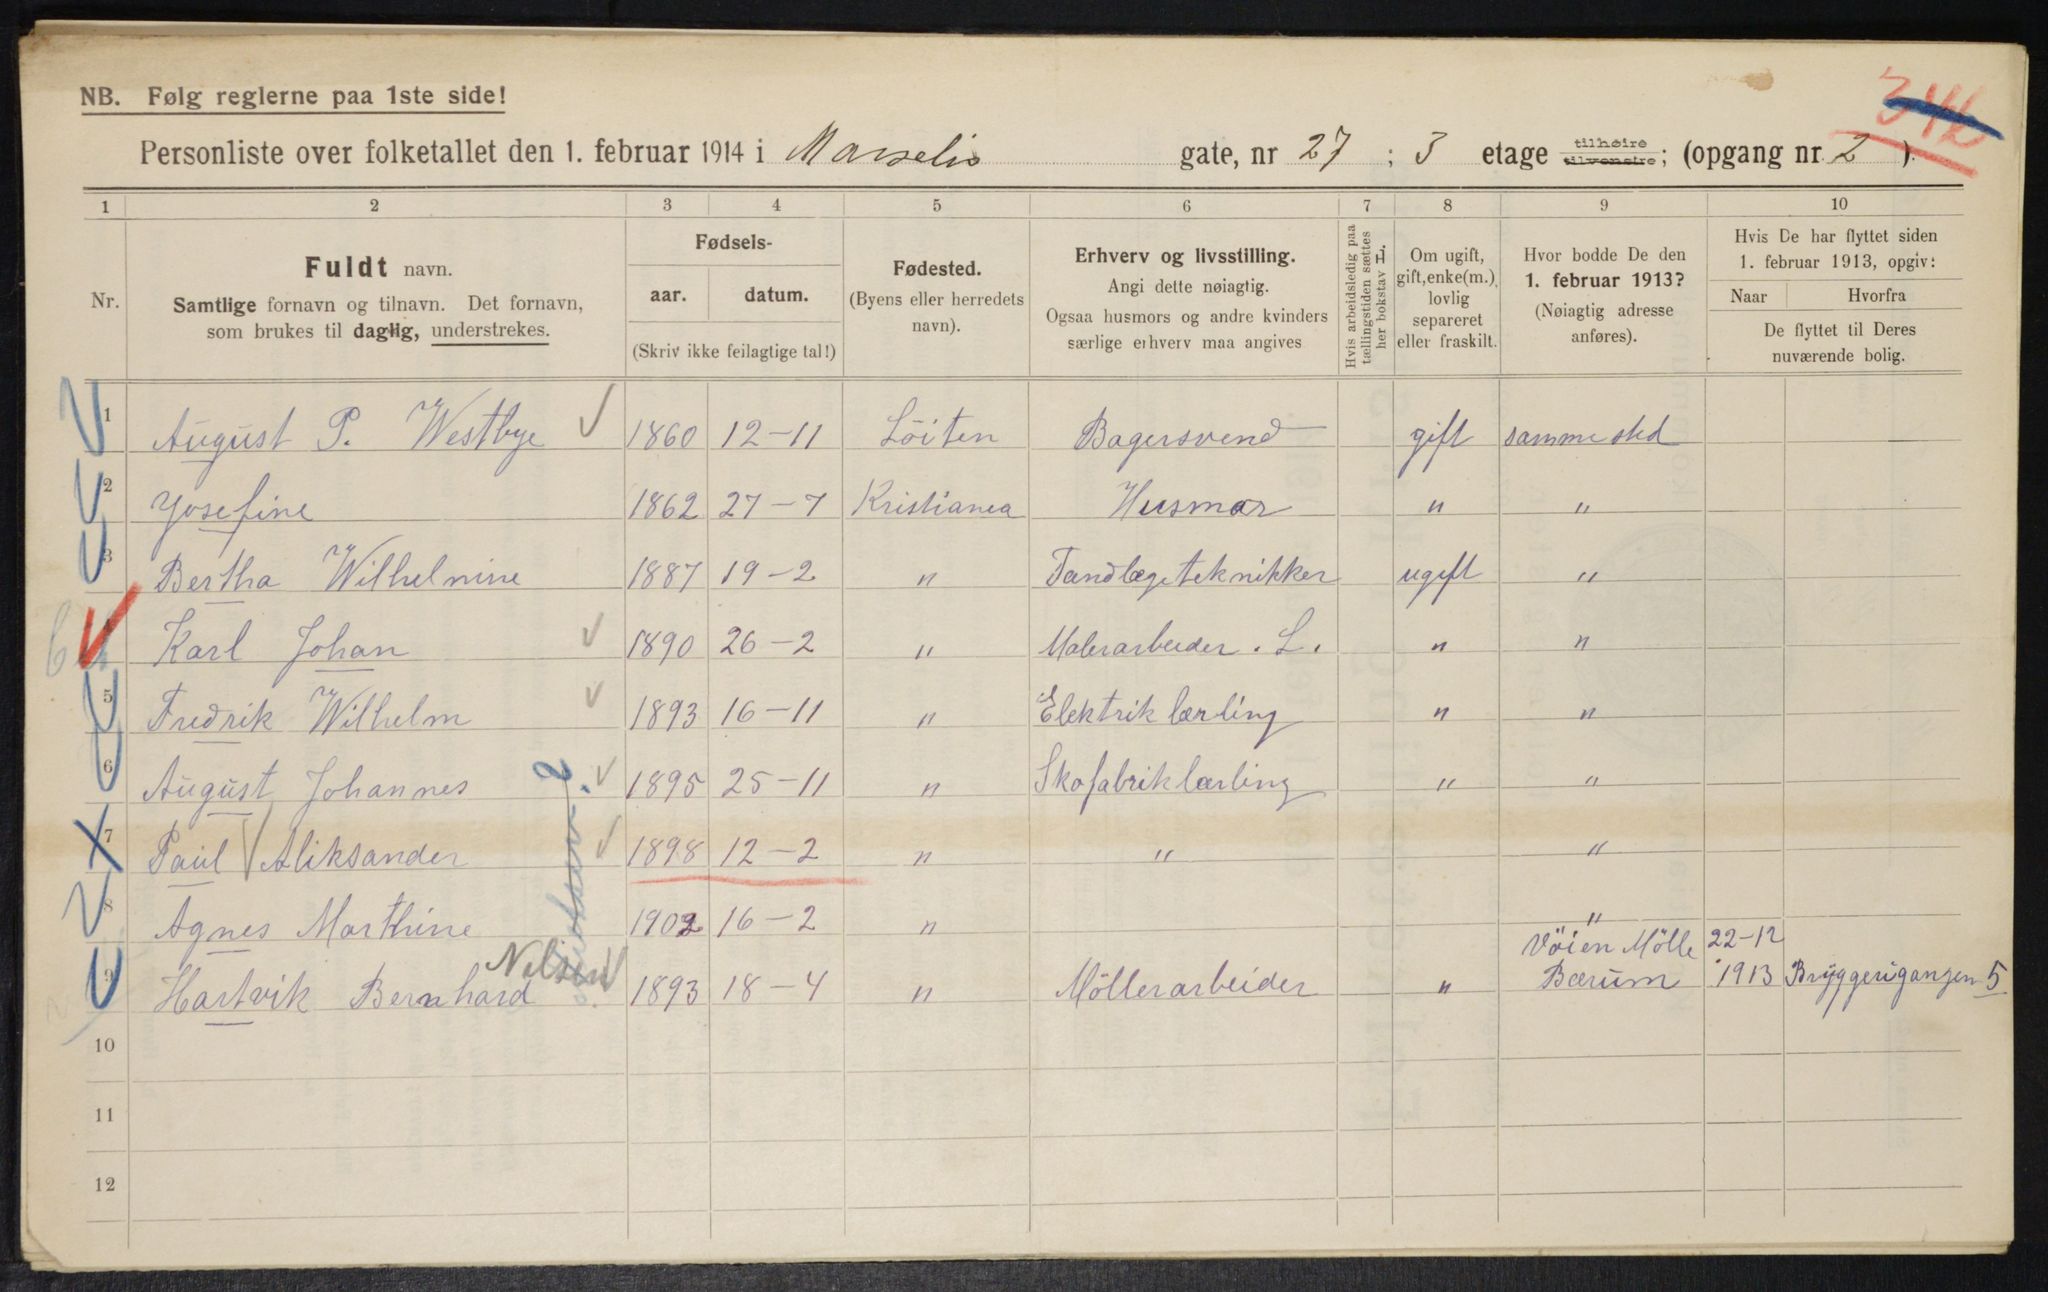 NB. Følg reglerne paa 1ste side!
Personliste over folketallet den 1. februar 1914 i Marselis gate, nr 27 ; 3 etage tilhøire tilvenstre; (opgang nr. 2 ).
1 2 3 4 5 6 7 8 9 10
Nr.
Fuldt navn.
Samtlige fornavn og tilnavn. Det fornavn,
som brukes til daglig, understrekes.
Fødsels-
aar. datum.
(Skriv ikke feilagtige tal!)
Fødested.
(Byens eller herredets
navn).
Erhverv og livsstilling.
Angi dette nøiagtig.
Ogsaa husmors og andre kvinders
særlige erhverv maa angives
Hvis arbeidsledig paa
tællingstiden sættes
her bokstav L.
Om ugift,
gift, enke(m.),
lovlig
separeret
eller fraskilt.
Hvor bodde De den
1. februar 1913?
(Nøiagtig adresse
anføres).
Hvis De har flyttet siden
1. februar 1913, opgiv:
Naar Hvorfra
De flyttet til Deres
nuværende bolig.
1 August P. Westbye 1860 12-11 Löiten Bagersvend gift samme sted
2 Yosefine 1862 27-7 Kristiania Husmor " "
3 Bertha Wilhelmine 1887 19-2 " Tandlægeteknikker ugift "
Karl Johan 1890 26-2 " Malerarbeider . L. " "
5 Fredrik Wilhelm 1893 16-11 " Elektrik lærling " "
6 August Johannes 1895 25-11 " Skofabriklærling " "
7 Paul Aliksander 1898 12-2 " " "
8 Agnes Marthine 1902 16-2 " "
9 Hartvik Bernhard Nelsen 1893 18-4 " Möllerarbeider " Vöien Mölle Bærum 22-12 1913 Bryggerigangen 5
10
11
12